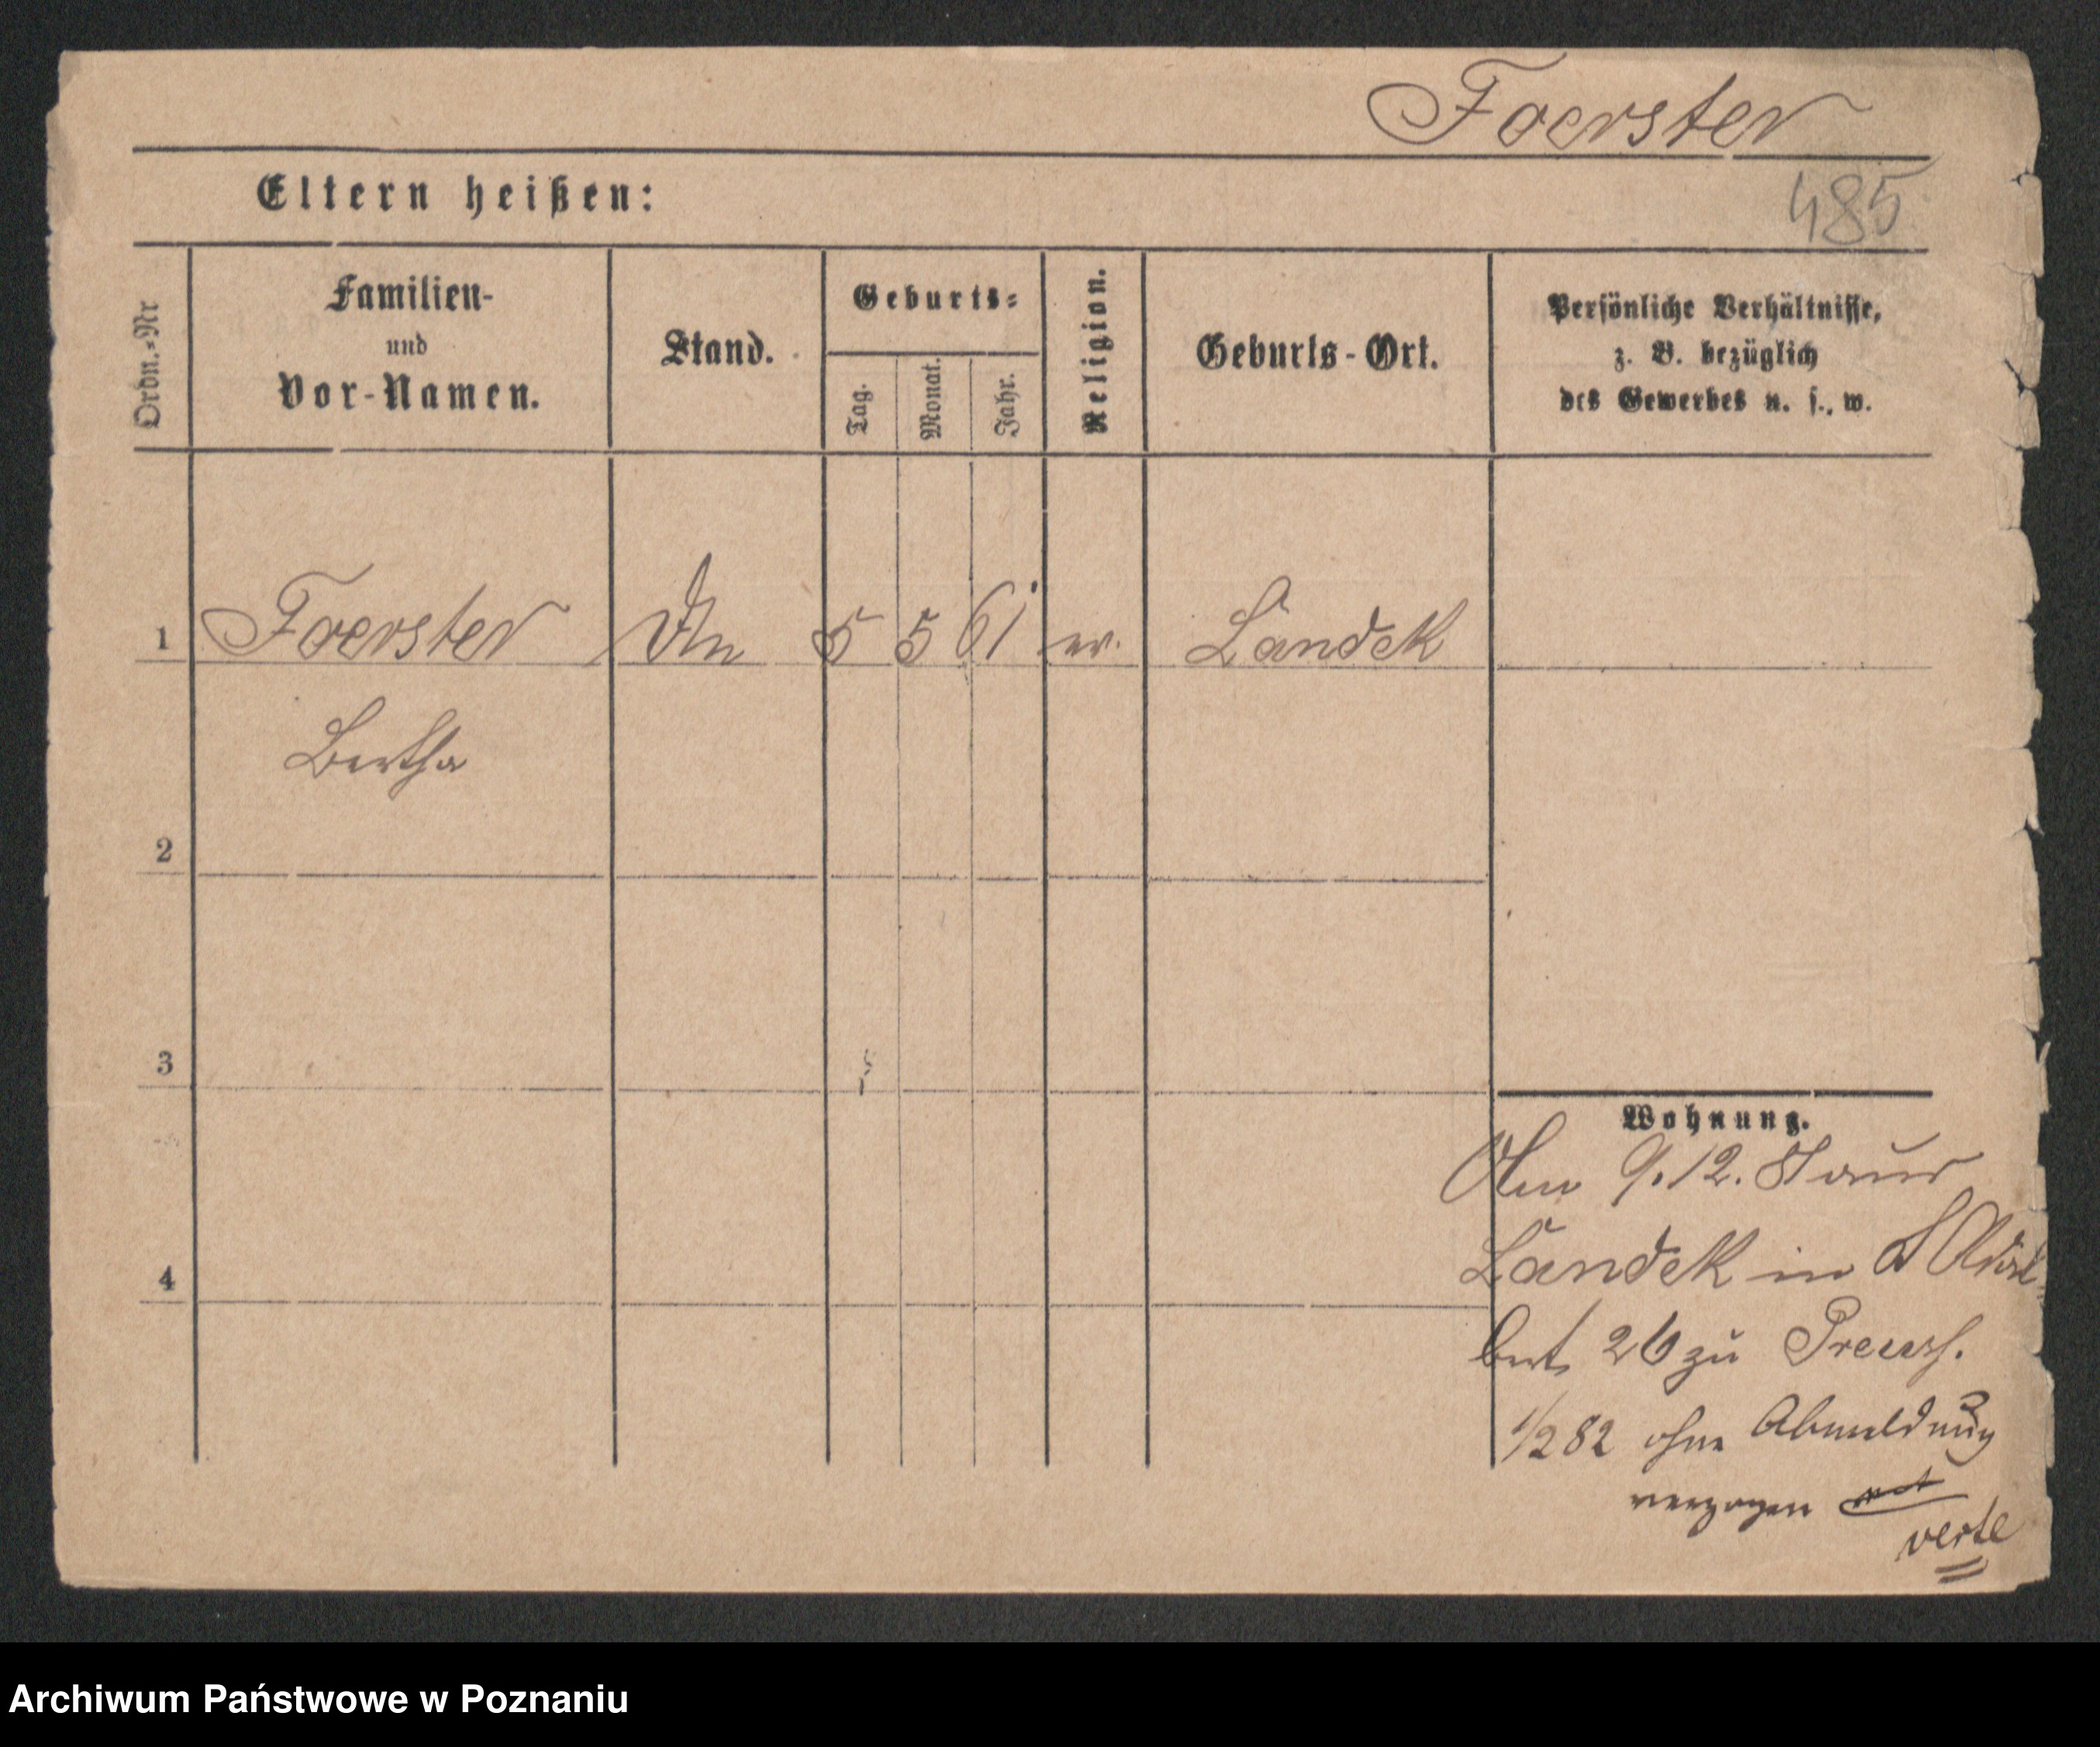 Foerster
485
Eltern heißen:
Ordn.-Nr
Familien-
und
Vor-Namen.
Stand.
Geburts-
Tag.
Monat.
Jahr.
Religion.
Geburts-Ort.
Persönliche Verhältnisse,
z. B. bezüglich
des Gewerbes u. s., w.
1 Foerster 5 5 61 ev. Landek
Bertha
2
3
4
Wohnung.
Am 9.12.81 aus
Landek in St Adal-
bert 26 zu Preuss.
1/2 82 ohne Abmeldung
verzogen
verte
Archiwum Państwowe w Poznaniu